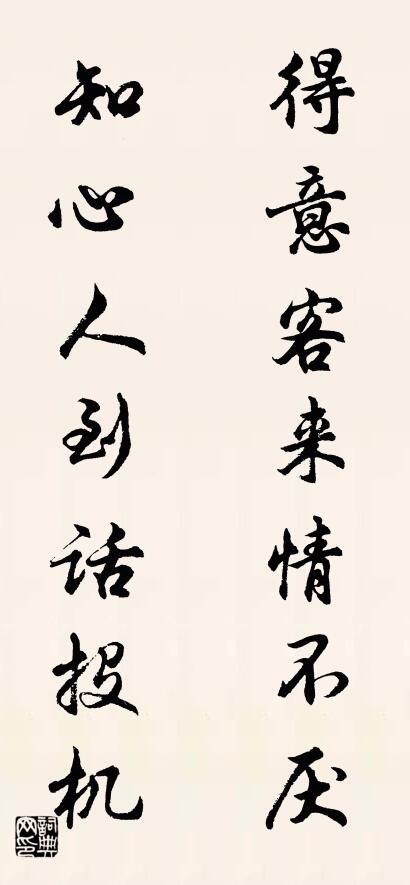 得意客来情不厌
知心人到话投机
词典网印